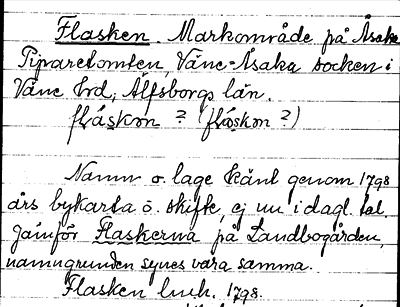 Flasken. Markområde på Åsaka
Piparetomten, Väne-Åsaka socken i
Väne hrd, Älfsborgs län.
flás̡kɷn ? (flás̡kɷn ?)
Namn o. läge känt genom 1798
års bykarta ö. skifte, ej nu i dagl. tal.
Jämför Flaskerna på Landbogården,
namngrunden synes vara samma.
Flasken lmh. 1798.